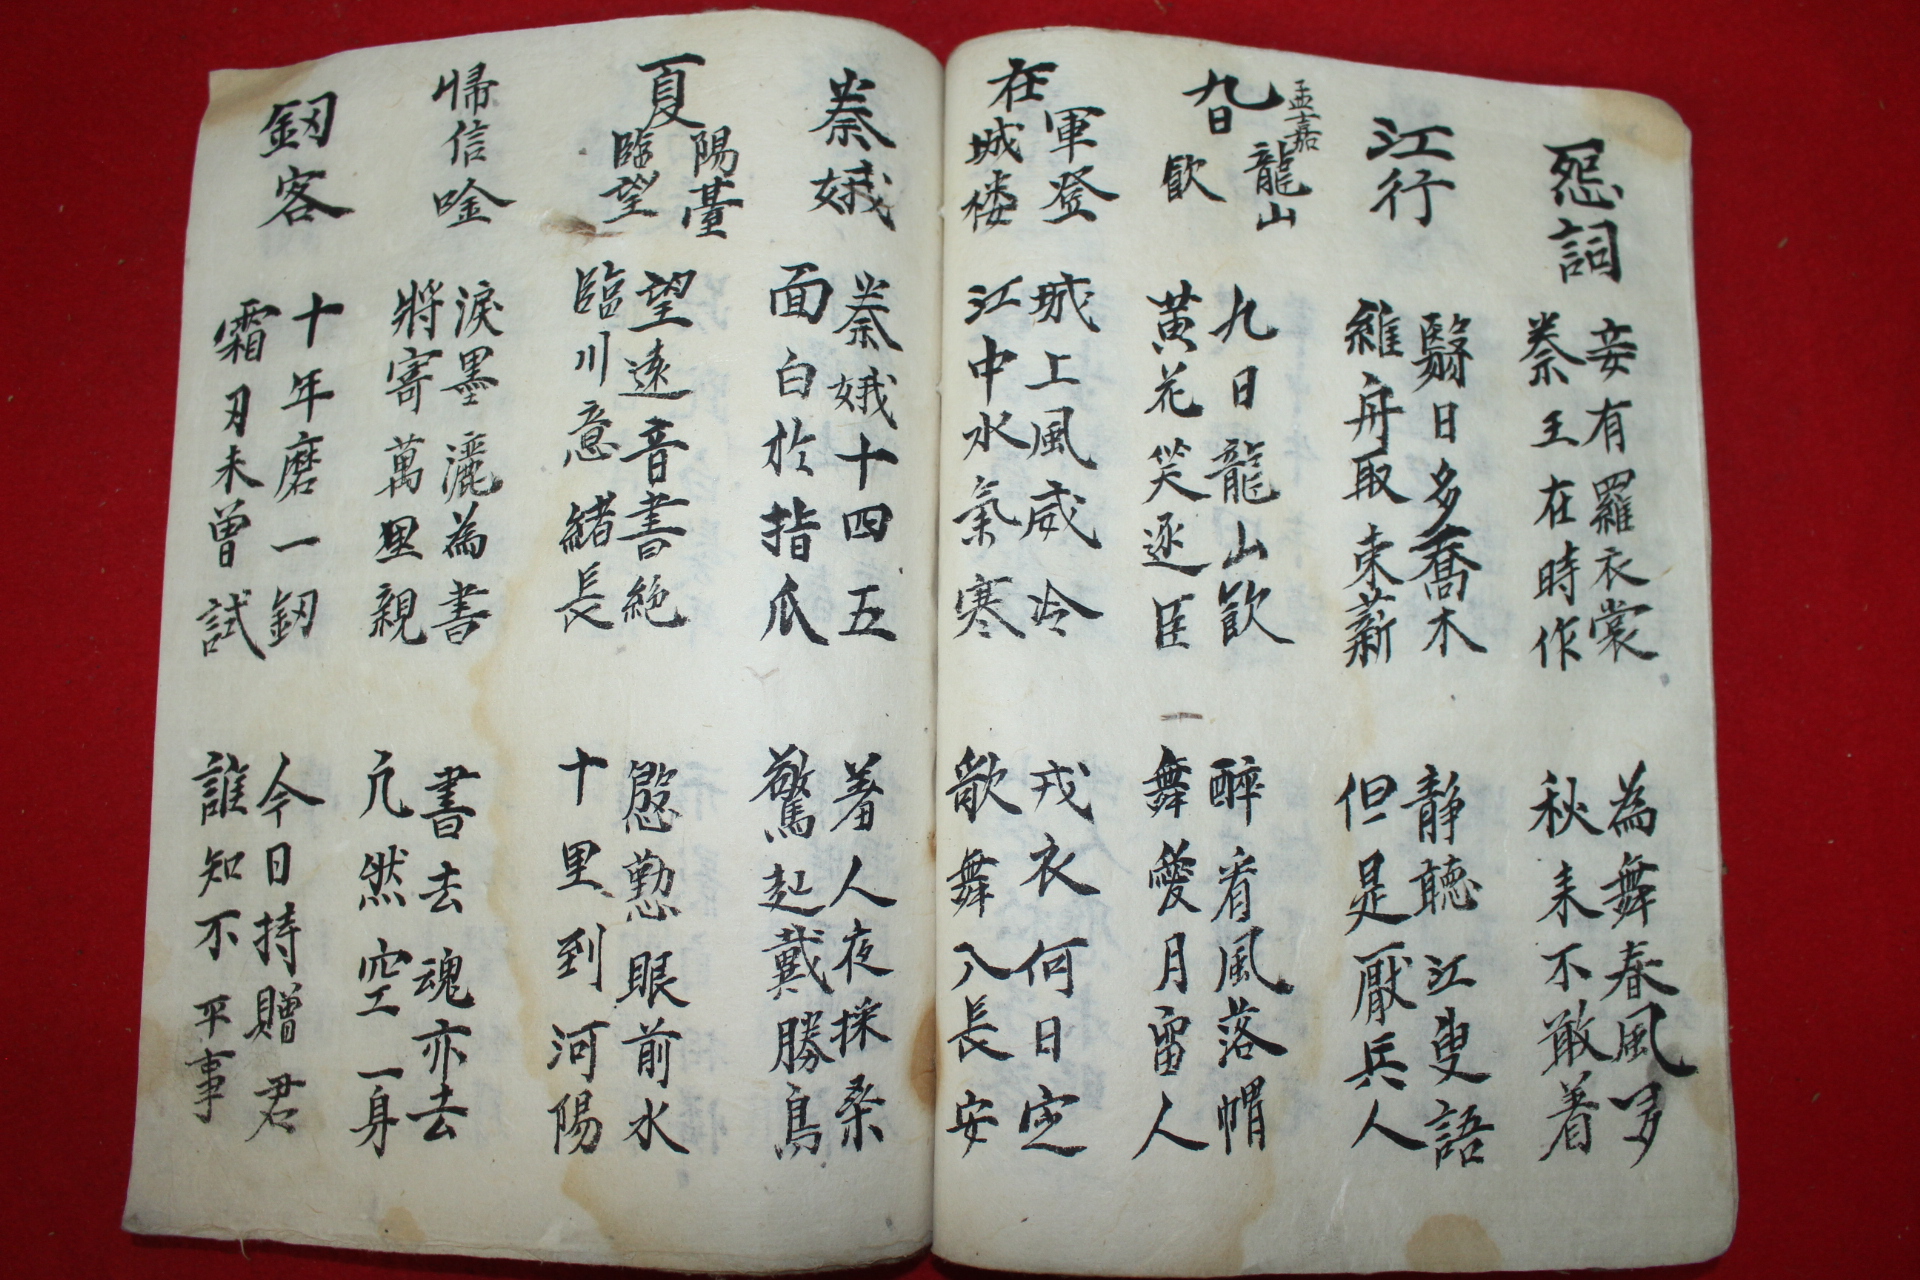 怨詞
妾有羅衣裳
秦王在時作
為舞春風多
秋来不敢着
江行
翳日多喬木
維舟取束薪
静聽江叟語
但是厭兵人
九日
孟嘉
龍山
飮
九日龍山飮
黃花笑逐臣
醉看風落帽
舞愛月留人
在
軍登
城楼
城上風威冷
江中水氣寒
戎衣何日定
歌舞入長安
秦娥
秦娥十四五
面白於指爪
羞人夜採桑
驚起戴勝鳥
夏
陽䑓
臨望
望遠音書絶
臨川意緒長
慇懃眼前水
十里到河陽
帰信唫
淚墨灑為書
將寄萬里親
書去魂亦去
兀然空一身
釰客
十年磨一釰
霜刃未曾試
今日持贈君
誰知不平事